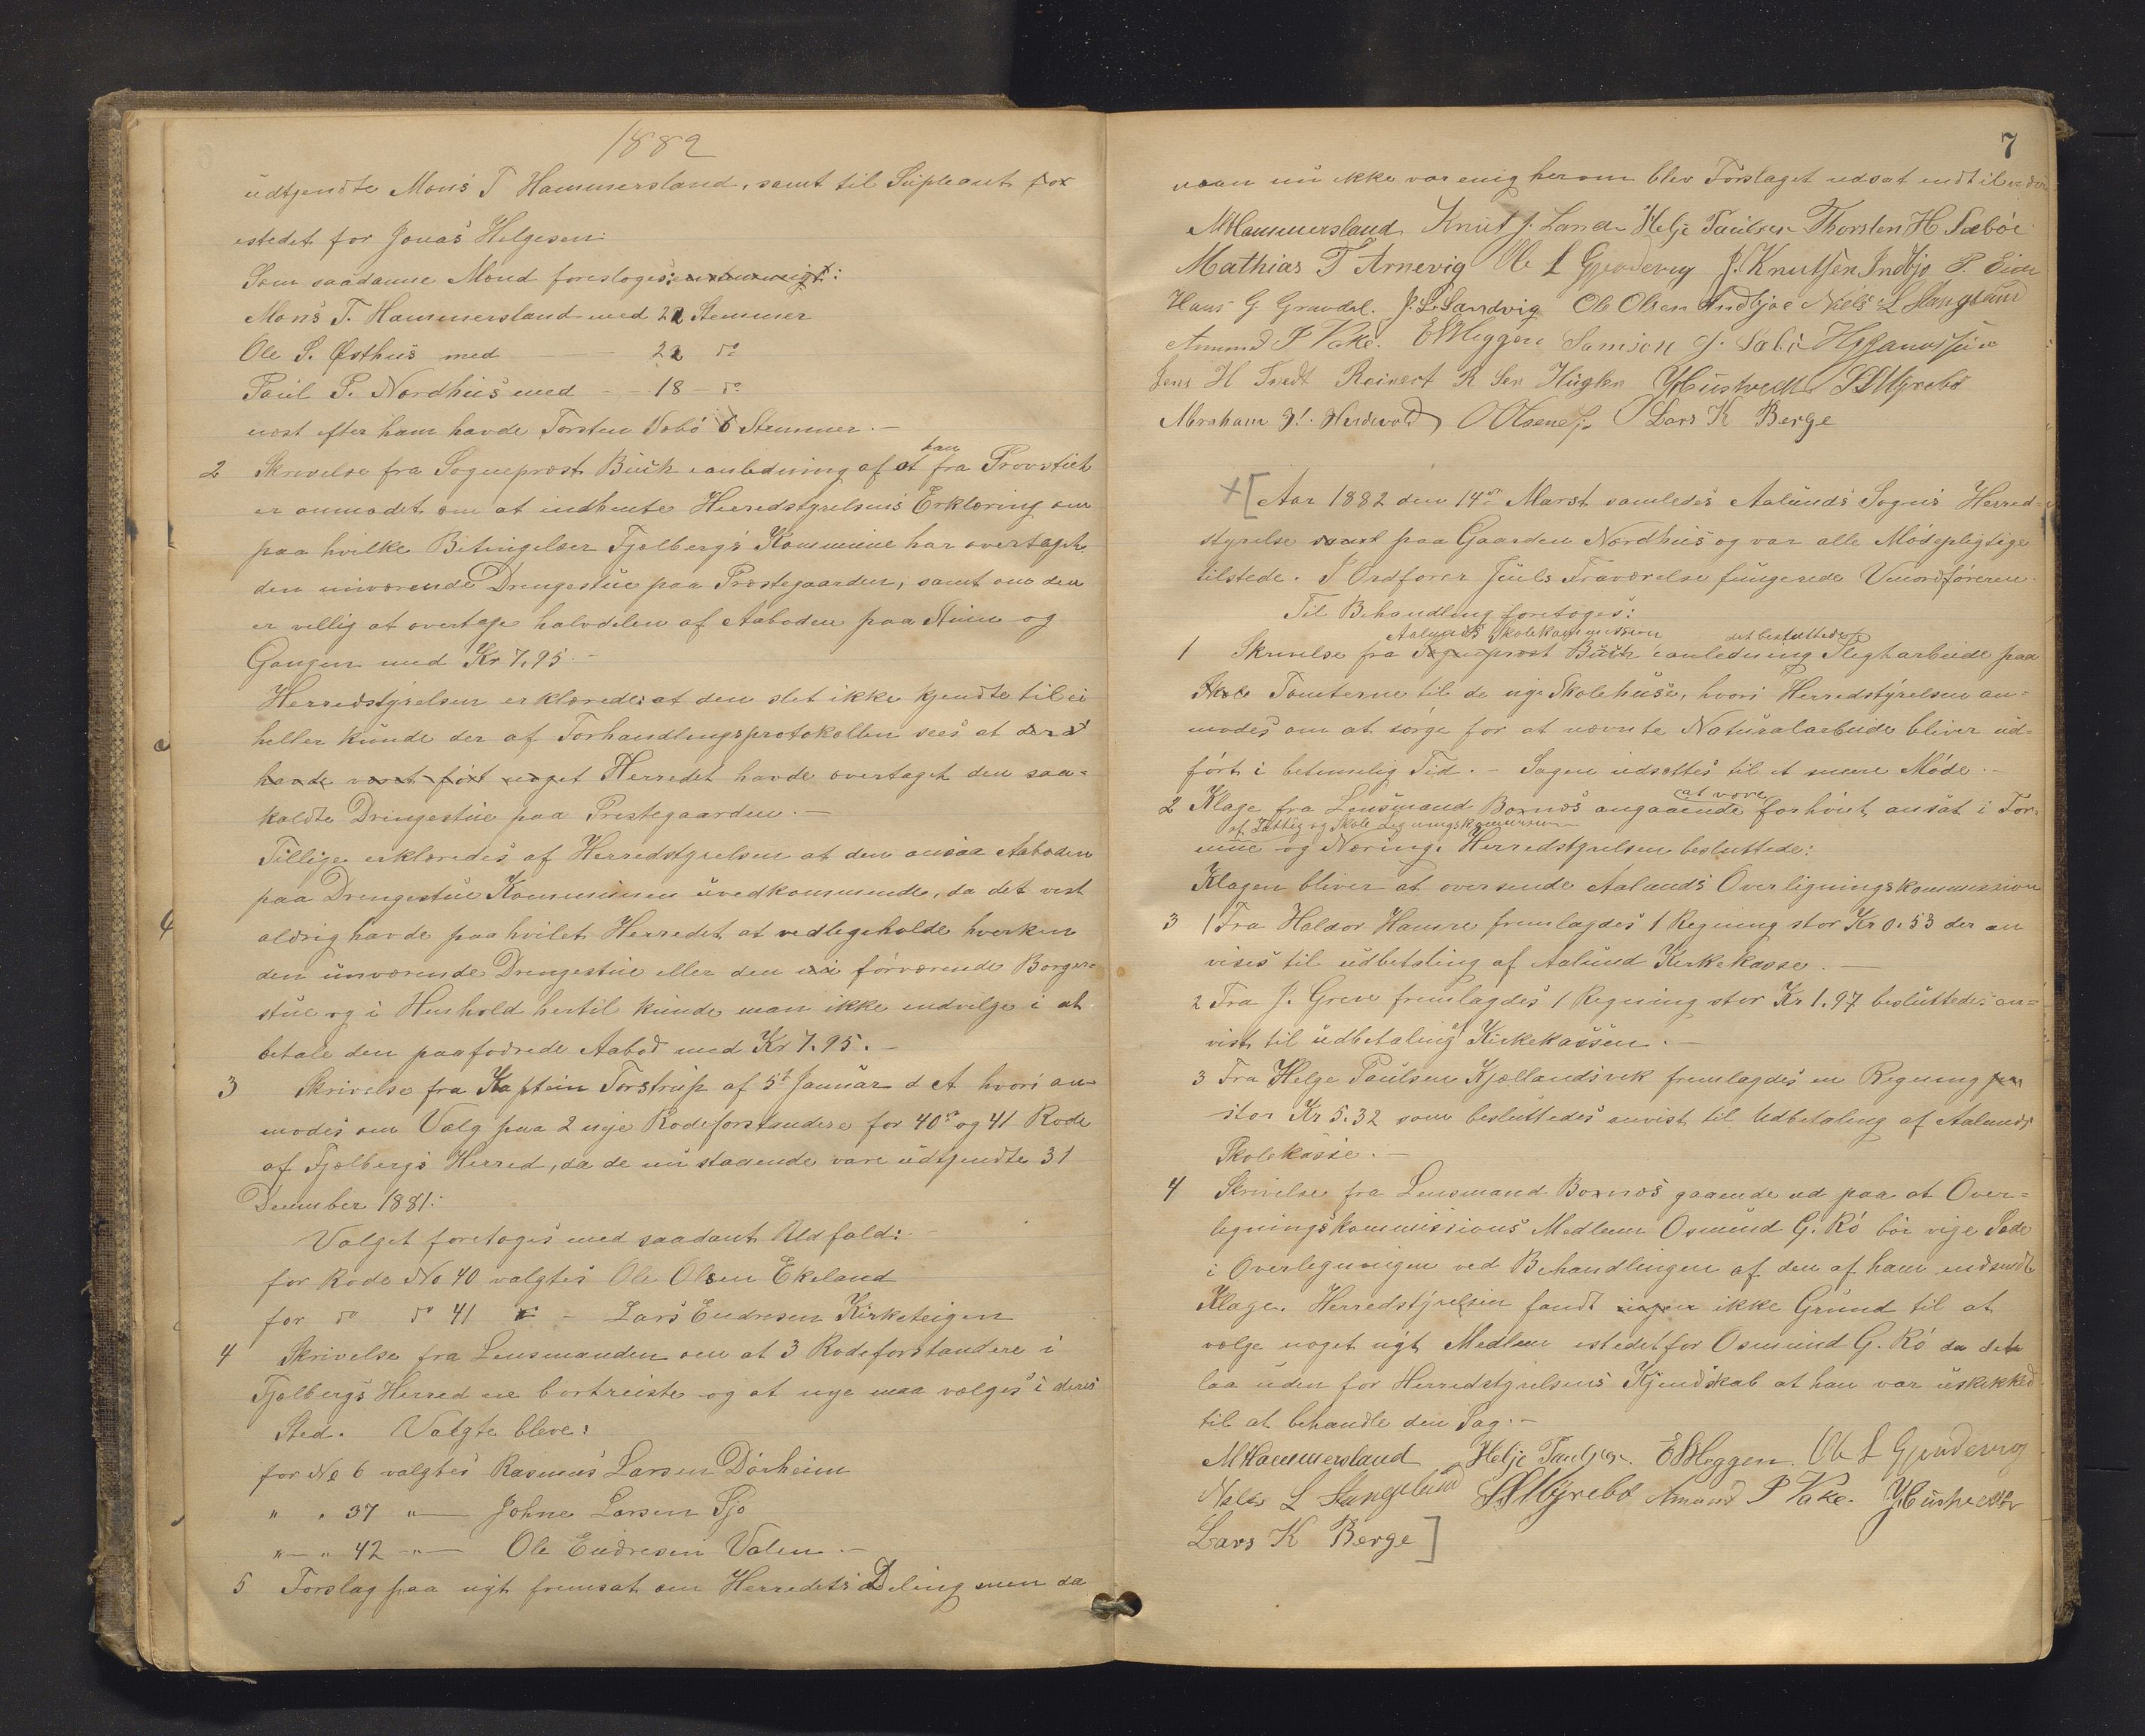 1882
udtjendte Mons T Hammersland, samt til Supleant for
istedet for Jonas Helgesen:
Som saadanne Mænd foresloges:
Mons T. Hammersland med 22 Stemmer
Ole S. Østhus med — 22 do
Paul P. Nordhus med — 18 — do
næst efter ham havde Torsten Sæbö 6 Stemmer. —
2 Skrivelse fra Sogneprest Buch i anledning af at han fra Provstiet
er anmodet om at indhente Herredstyrelsens Erklæring om
paa hvilke Betingelser Fjelbergs Kommune har overtaget
den nuværende Drengestue paa Præstegaarden, samt om den
er villig at overtage halvdelen af Aaboden paa Stuen og
Gangen med Kr 7,95. —
Herredstyrelsen erklærede: at den slet ikke kjendte til ei
heller kunde der af Forhandlingsprotokollen sees at
havde været ført noget Herredet havde overtaget den saa-
kaldte Drengestue paa Prestegaarden. —
Tillige erklæredes af Herredstyrelsen at den ansaa Aaboden
paa Drengestue Kommunen uvedkommende, da det vist
aldrig havde paahvilet Herredet at vedlegeholde hverken
den nuværende Drengestue eller den förværende Borger-
stue og i Henhold hertil kunde man ikke indvilge i at
betale den paafodrede Aabod med Kr 7.95. —
3 Skrivelse fra Kaptein Torstrup af 5t Januar d A hvori an-
modes om Valg paa 2 nye Rodeforstandere for 40de og 41 Rode
af Fjelbergs Herred, da de nu staaende vare udtjendte 31
December 1881:
Valget foretoges med saadant Udfald: —
for Rode No 40 valgtes Ole Olsen Ekeland
for do do 41 — Lars Endresen Kirketeigen
4 Skrivelse fra Lensmanden om at 3 Rodeforstandere i
Fjelbergs Herred ere bortreiste og at nye maa vælges i deres
Sted. Valgte bleve:
for No 6 valgtes Rasmus Larsen Dörheim
" " 37 " — Johne Larsen Sjo
" — " 42 — " — Ole Endresen Valen —
5 Forslag paa nyt fremsat om Herredets Deling men da
7
man nu ikke var enig herom blev Forslaget udsat indtil videre
MHammersland Knut J. Lande Helje Paulsen Thorsten H Sæböe
Mathias T Arnevig Ole L Gjerdevig J. Knutsen Indbjo P. Eien
Hans G. Gravdal. J. L. Sandvig Ole Olsen Indbjoe Niels L Stangeland
Amund P Vake. E Heggen Samson J. Sæbö
Jens H Tvedt Reinert R Sen Huglen Hustvedt SSMyrebö
Abraham J. OOlsen Lars K Berge
+[ Aar 1882 den 14de Marst samledes Aalunds Sogns Herred-
styrelse paa Gaarden Nordhus og var alle Mödepligtige
tilstede. I Ordförer Juuls Fraværelse fungerede Viceordföreren.
Til Behandling foretoges:
Aalunds Skolekommission det besluttede
1 Skrivelse fra Sogneprest Buch i anledning Pligtarbeide paa
Skole Tomterne til de nye Skolehuse, hvori Herredstyrelsen an-
modes om at sörge for at nævnte Naturalarbeide bliver ud-
fört i betimelig Tid. — Sagen udsættes til et senere Möde. —
2 Klage fra Lensmand Boxnæs angaaende at være forhöiet ansat i For-
af Fattig og Skole Ligningskommission
mue og Næring. Herredstyrelsen besluttede:
Klagen bliver at oversende Aalunds Overligningskommission
3 1 Fra Haldor Hamre fremlagdes 1 Regning stor Kr 0.53 der an
vises til udbetaling af Aalund Kirkekasse. —
2 Fra J. Greve fremlagdes 1 Regning stor Kr 1.97 besluttedes an-
vist til udbetaling af Kirkekassen. —
3 Fra Helge Paulsen Kjællandsvik fremlagdes en Regning
stor Kr 5.32 som besluttedes anvist til Udbetaling af Aalunds
Skolekasse. —
4 Skrivelse fra Lensmand Boxnæs gaaende ud paa at Over-
ligningskommissions Medlem Osmund G. Rö bör vige Sæde
i Overligningen ved Behandlingen af den af ham indsendte
Klage. Herredstyrelsen fandt ingen ikke Grund til at
vælge noget nyt Medlem istedetfor Osmund G. Rö da det
laa uden for Herredstyrelsens Kjendskab at han var uskikked
til at behandle den Sag. —
MHammersland Helje Paulsen. E Heggen. Ole L Gjerdevig
Niels L Stangeland SSMyrebö Amund P Vake. Hustvedt
Lars K Berge ]